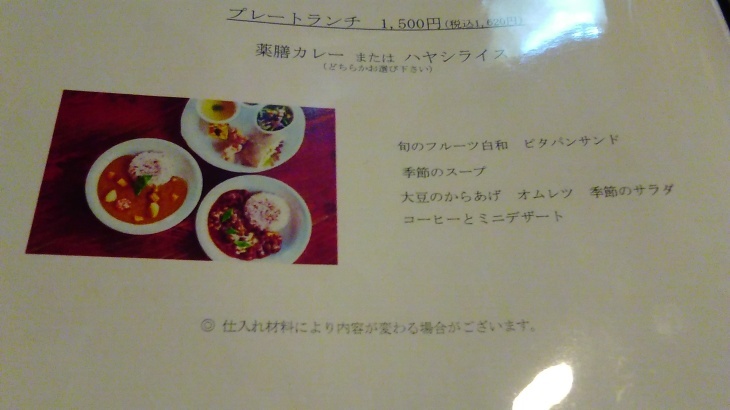 プレートランチ 1,500円(税込1,620円)
薬膳カレー または ハヤシライス
(どちらかお選び下さい)
旬のフルーツ白和 ピタパンサンド
季節のスープ
大豆のからあげ オムレツ 季節のサラダ
コーヒーとミニデザート
◎ 仕入れ材料により内容が変わる場合がございます。